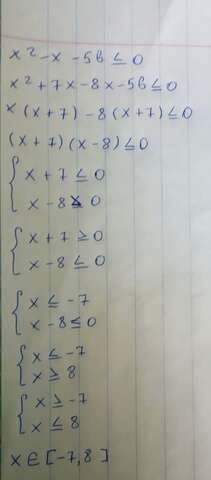 x² - x - 56 ≤ 0
x² + 7x - 8x - 56 ≤ 0
x (x + 7) - 8 (x + 7) ≤ 0
(x + 7) (x - 8) ≤ 0
{ x + 7 ≤ 0
x - 8 ≥ 0
{ x + 7 ≥ 0
x - 8 ≤ 0
{ x ≤ -7
x - 8 ≤ 0
{ x ≤ -7
x ≥ 8
{ x ≥ -7
x ≤ 8
x ∈ [-7, 8]